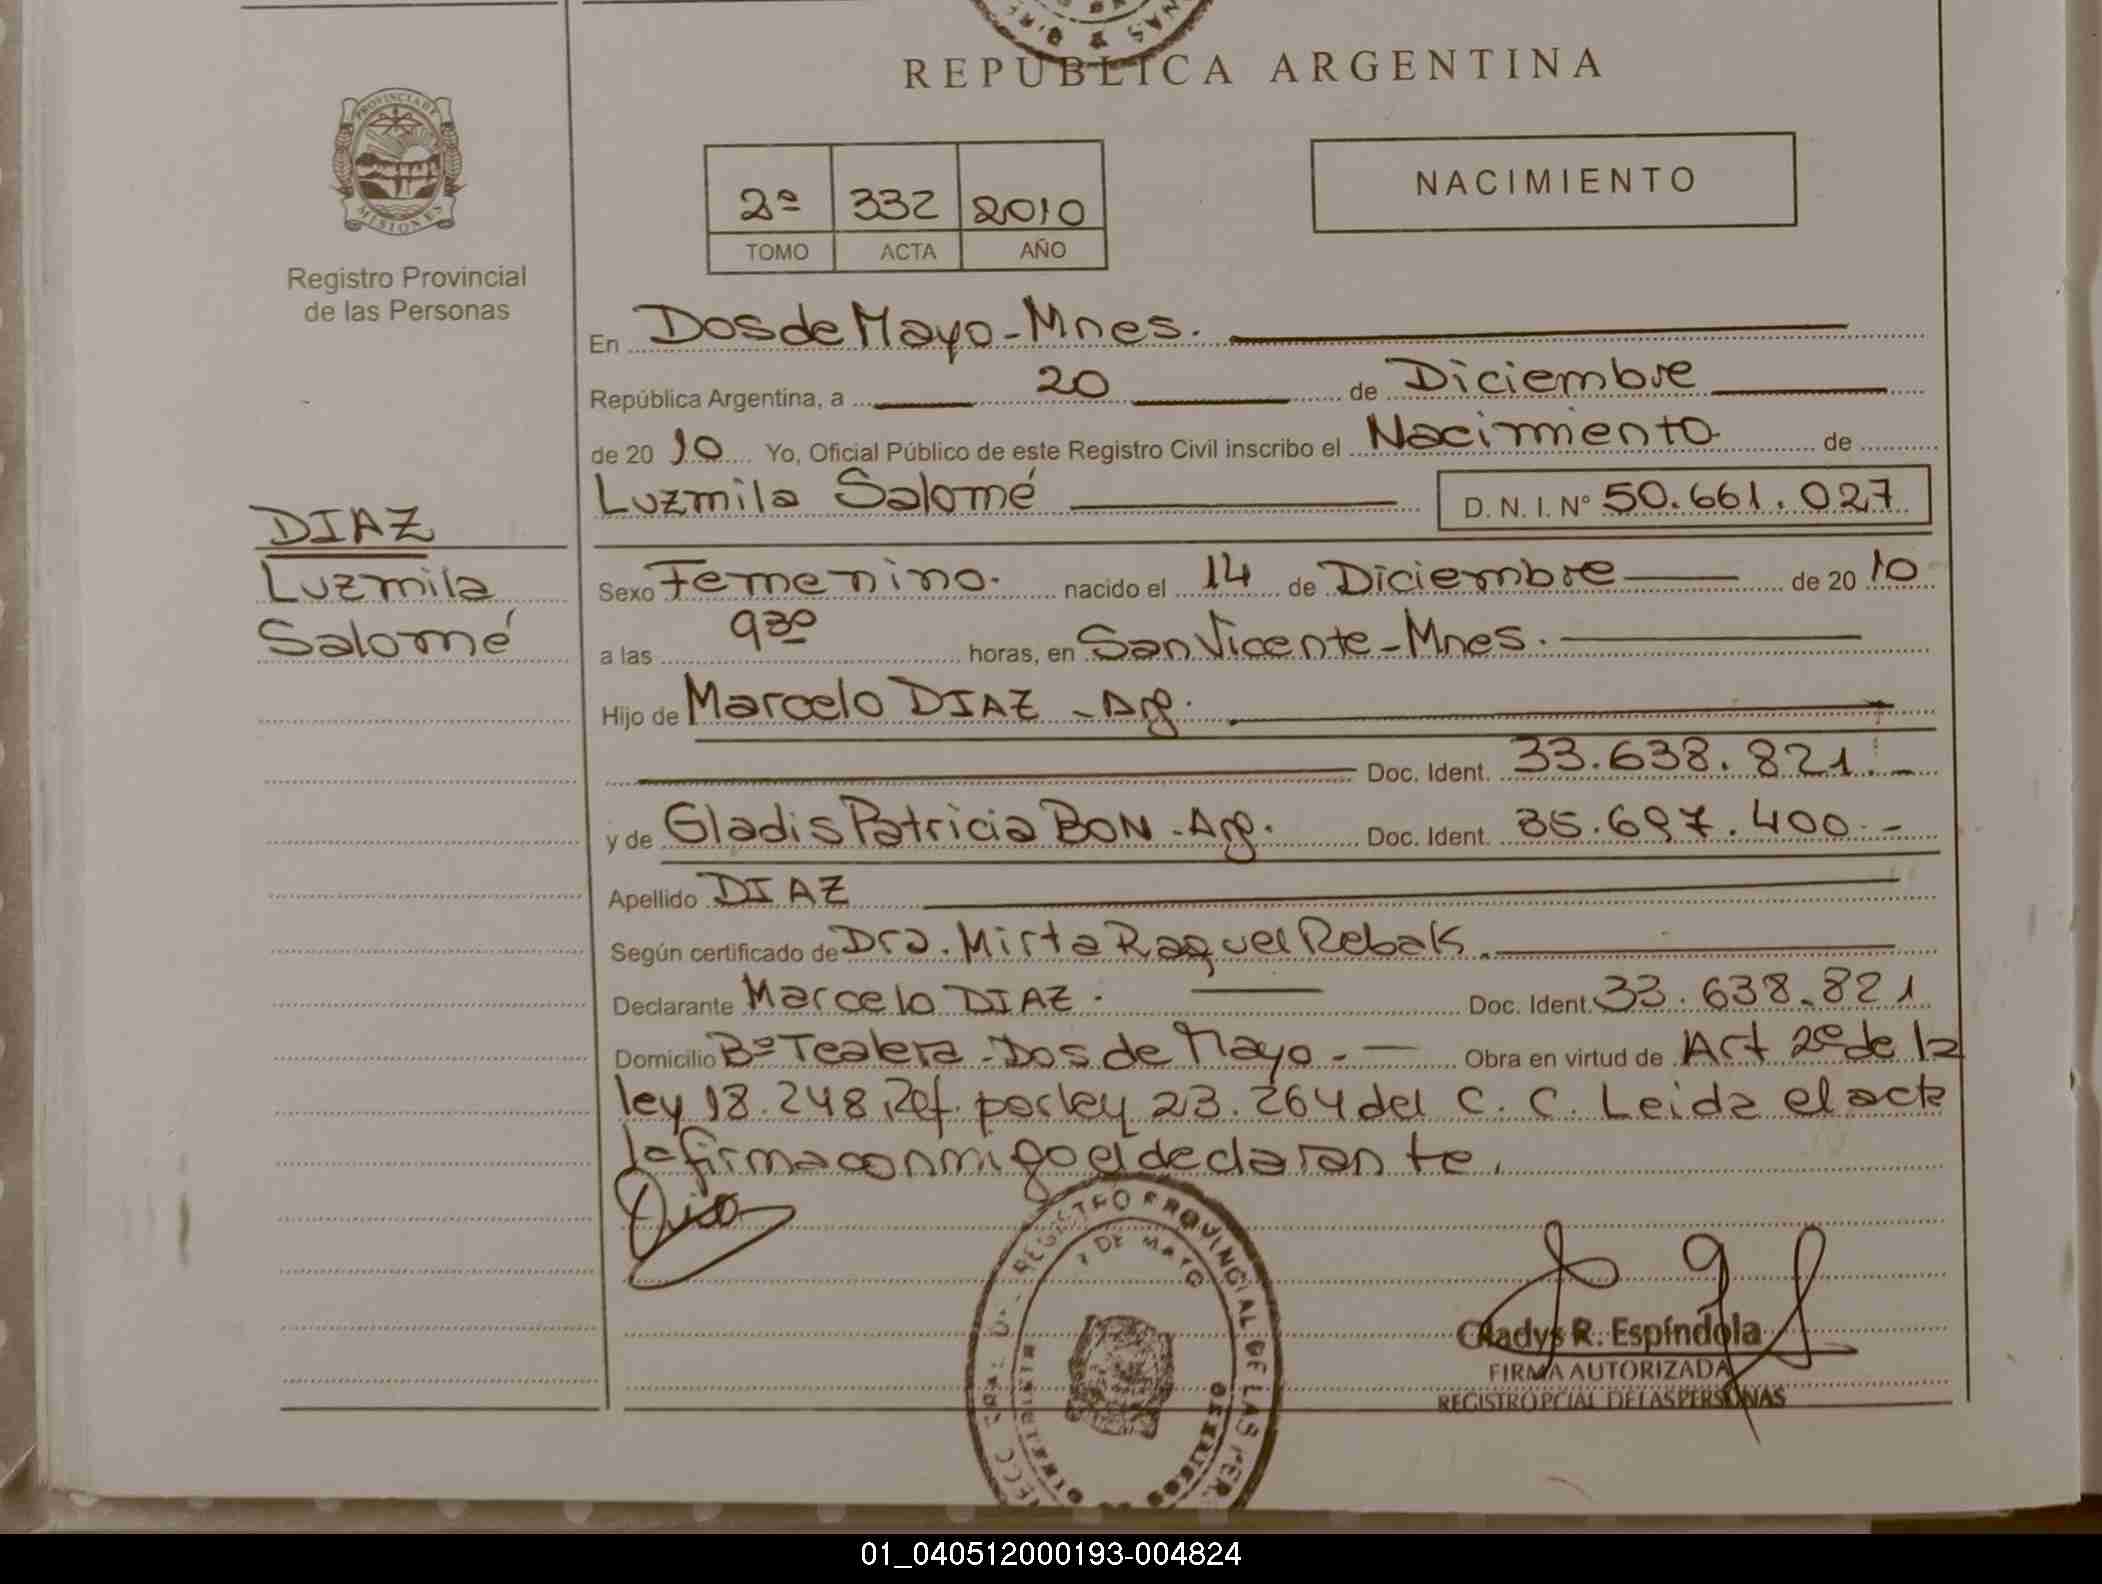 REPUBLICA ARGENTINA
PROVINCIA DE
MISIONES
Registro Provincial
de las Personas
2º 332 2010
TOMO ACTA AÑO
NACIMIENTO
En Dos de Mayo - Mnes.
República Argentina, a 20 de Diciembre
de 2010 Yo, Oficial Público de este Registro Civil inscribo el Nacimiento de
Luzmila Salomé D. N. I. Nº 50.661.027
DIAZ
Luzmila
Salomé
Sexo Femenino. nacido el 14 de Diciembre de 2010
a las 930 horas, en San Vicente - Mnes.
Hijo de Marcelo DIAZ - Arg.
Doc. Ident. 33.638.821.-
y de Gladis Patricia BON - Arg. Doc. Ident. 35.697.400.-
Apellido DIAZ
Según certificado de Dra. Mirta Raquel Rebak.
Declarante Marcelo DIAZ. Doc. Ident. 33.638.821
Domicilio Bº Tealera - Dos de Mayo.- Obra en virtud de Art 2º de la
ley 18.248 Ref. por ley 23.264 del C. C. Leida el acta
la firma conmigo el declarante.
REGISTRO PROVINCIAL DE LAS PER.
2 DE MAYO
Gladys R. Espíndola
FIRMA AUTORIZADA
REGISTRO PCIAL DE LAS PERSONAS
01_040512000193-004824